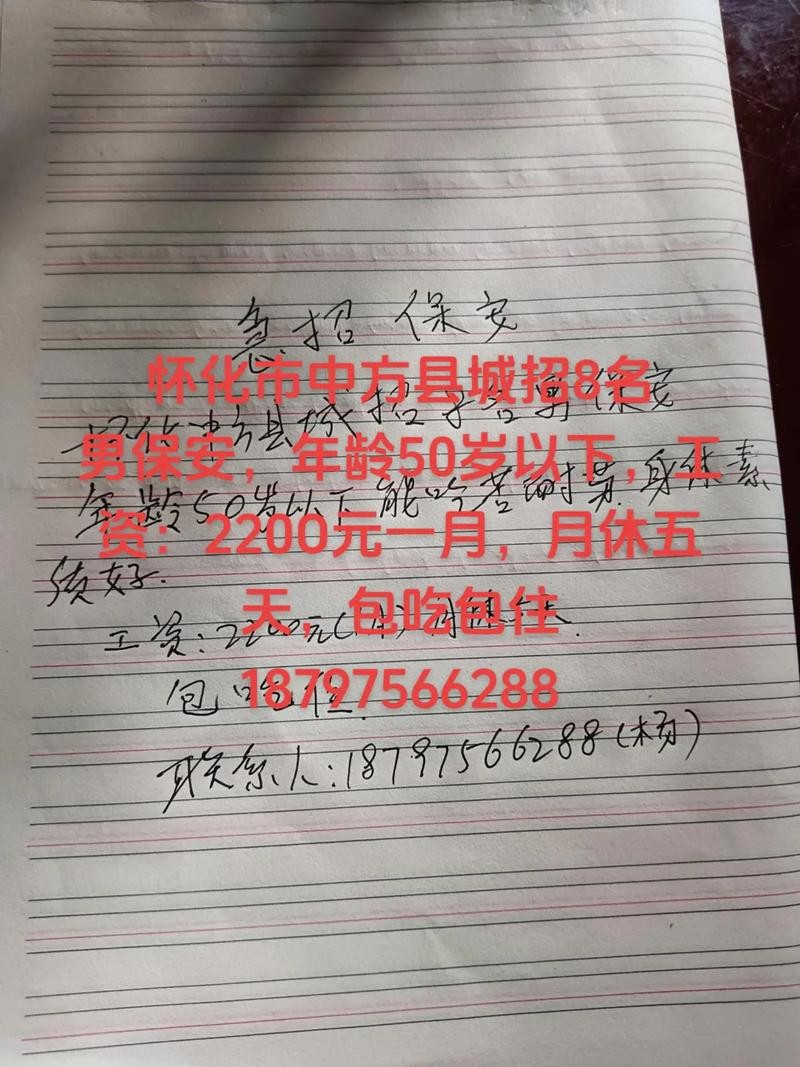 急招保安
怀化市中方县城招8名
男保安，年龄50岁以下，工
资：2200元一月，月休五
天，包吃包住
18797566288
年龄50岁以下能吃苦耐劳.身体素
质好.
工资:2200元
包吃住.
联系人:18797566288(杨)